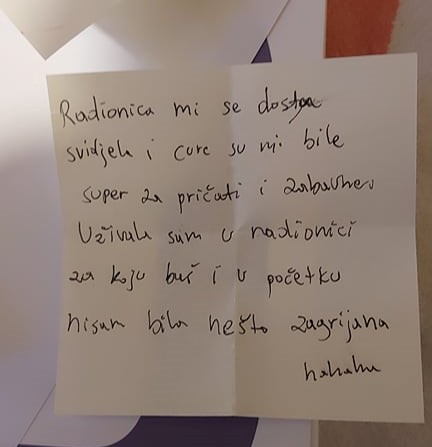 Radionica mi se dosta
svidjela i cure su mi bile
super za pričati i zabavne
Uživala sam u radionici
za koju baš i u početku
nisam bila nešto zagrijana
hahaha